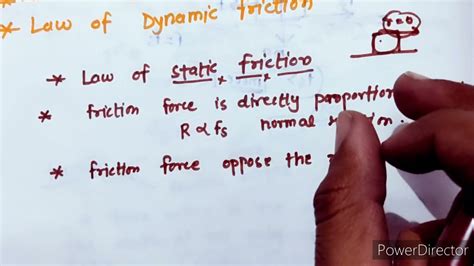 * Law of Dynamic friction
* Law of static friction
* friction force is directly proportion
R α fs normal
* friction force oppose the
PowerDirector